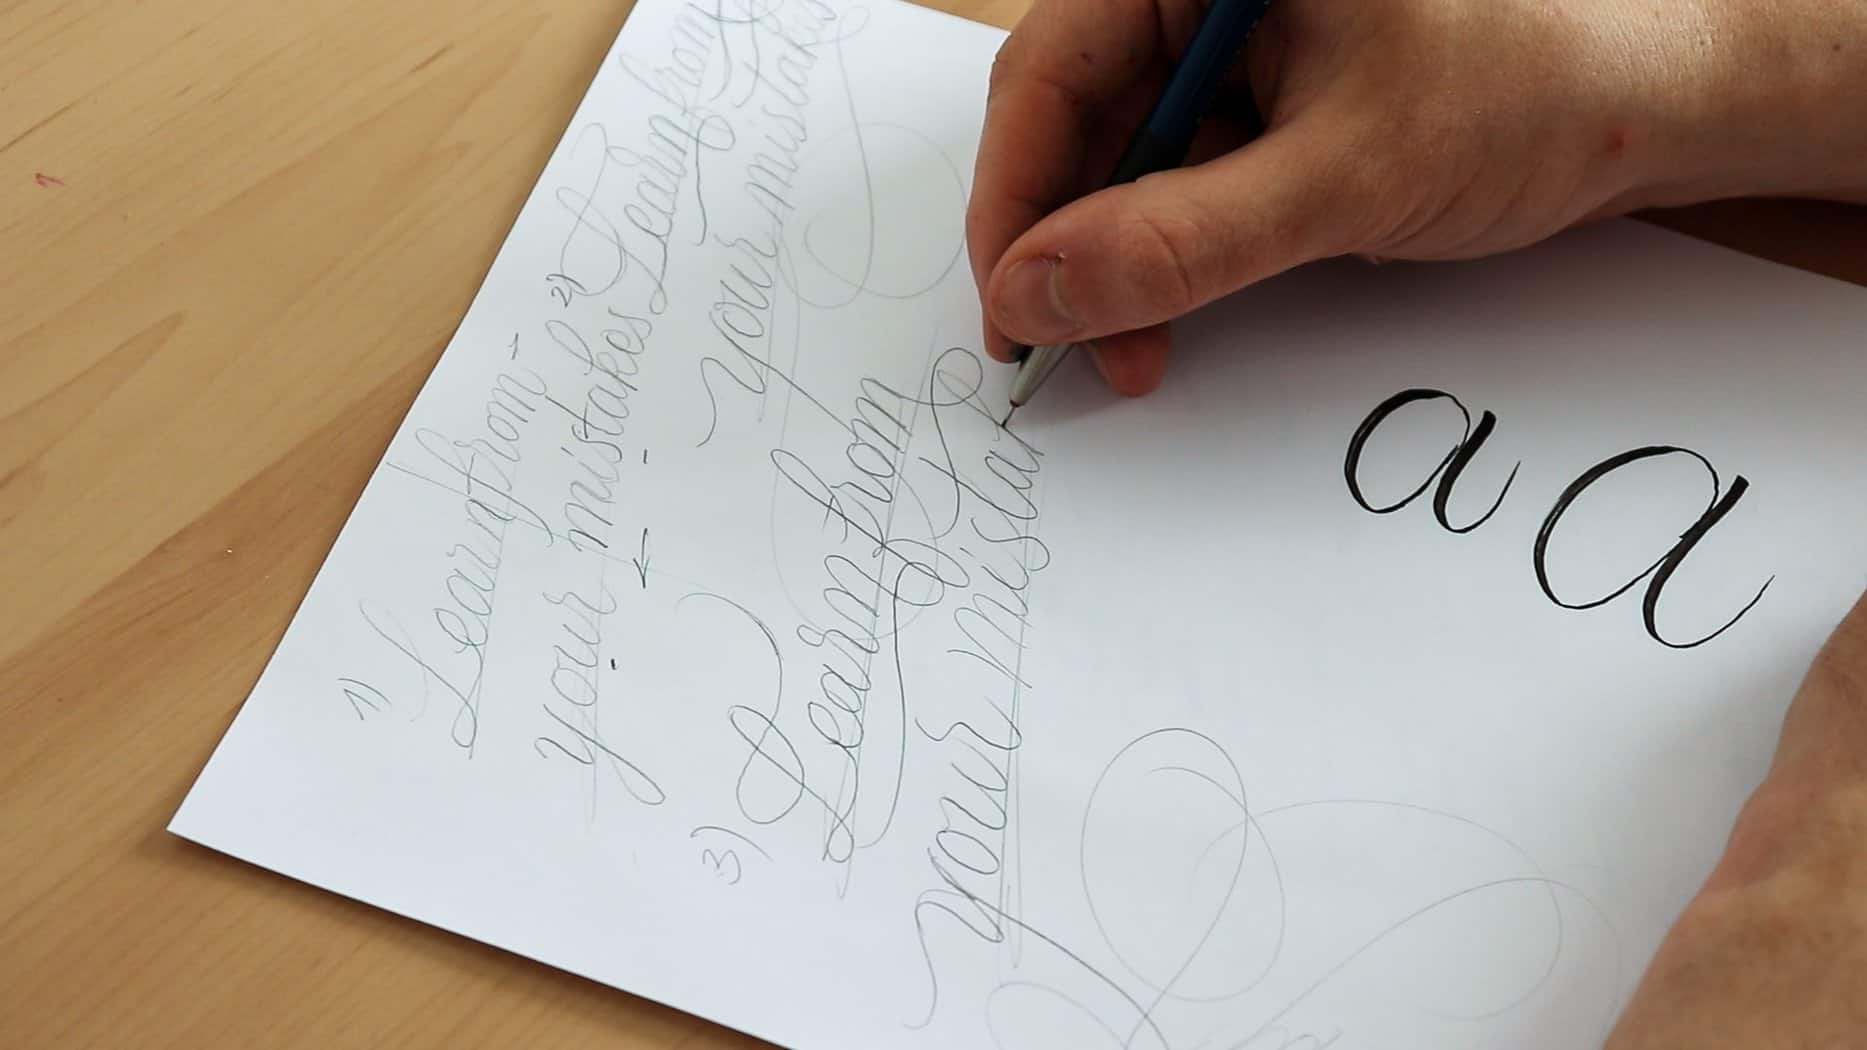 1) Learn from
your mistakes
2) Learn from
your mistakes
3) Learn from
your mistak
a a